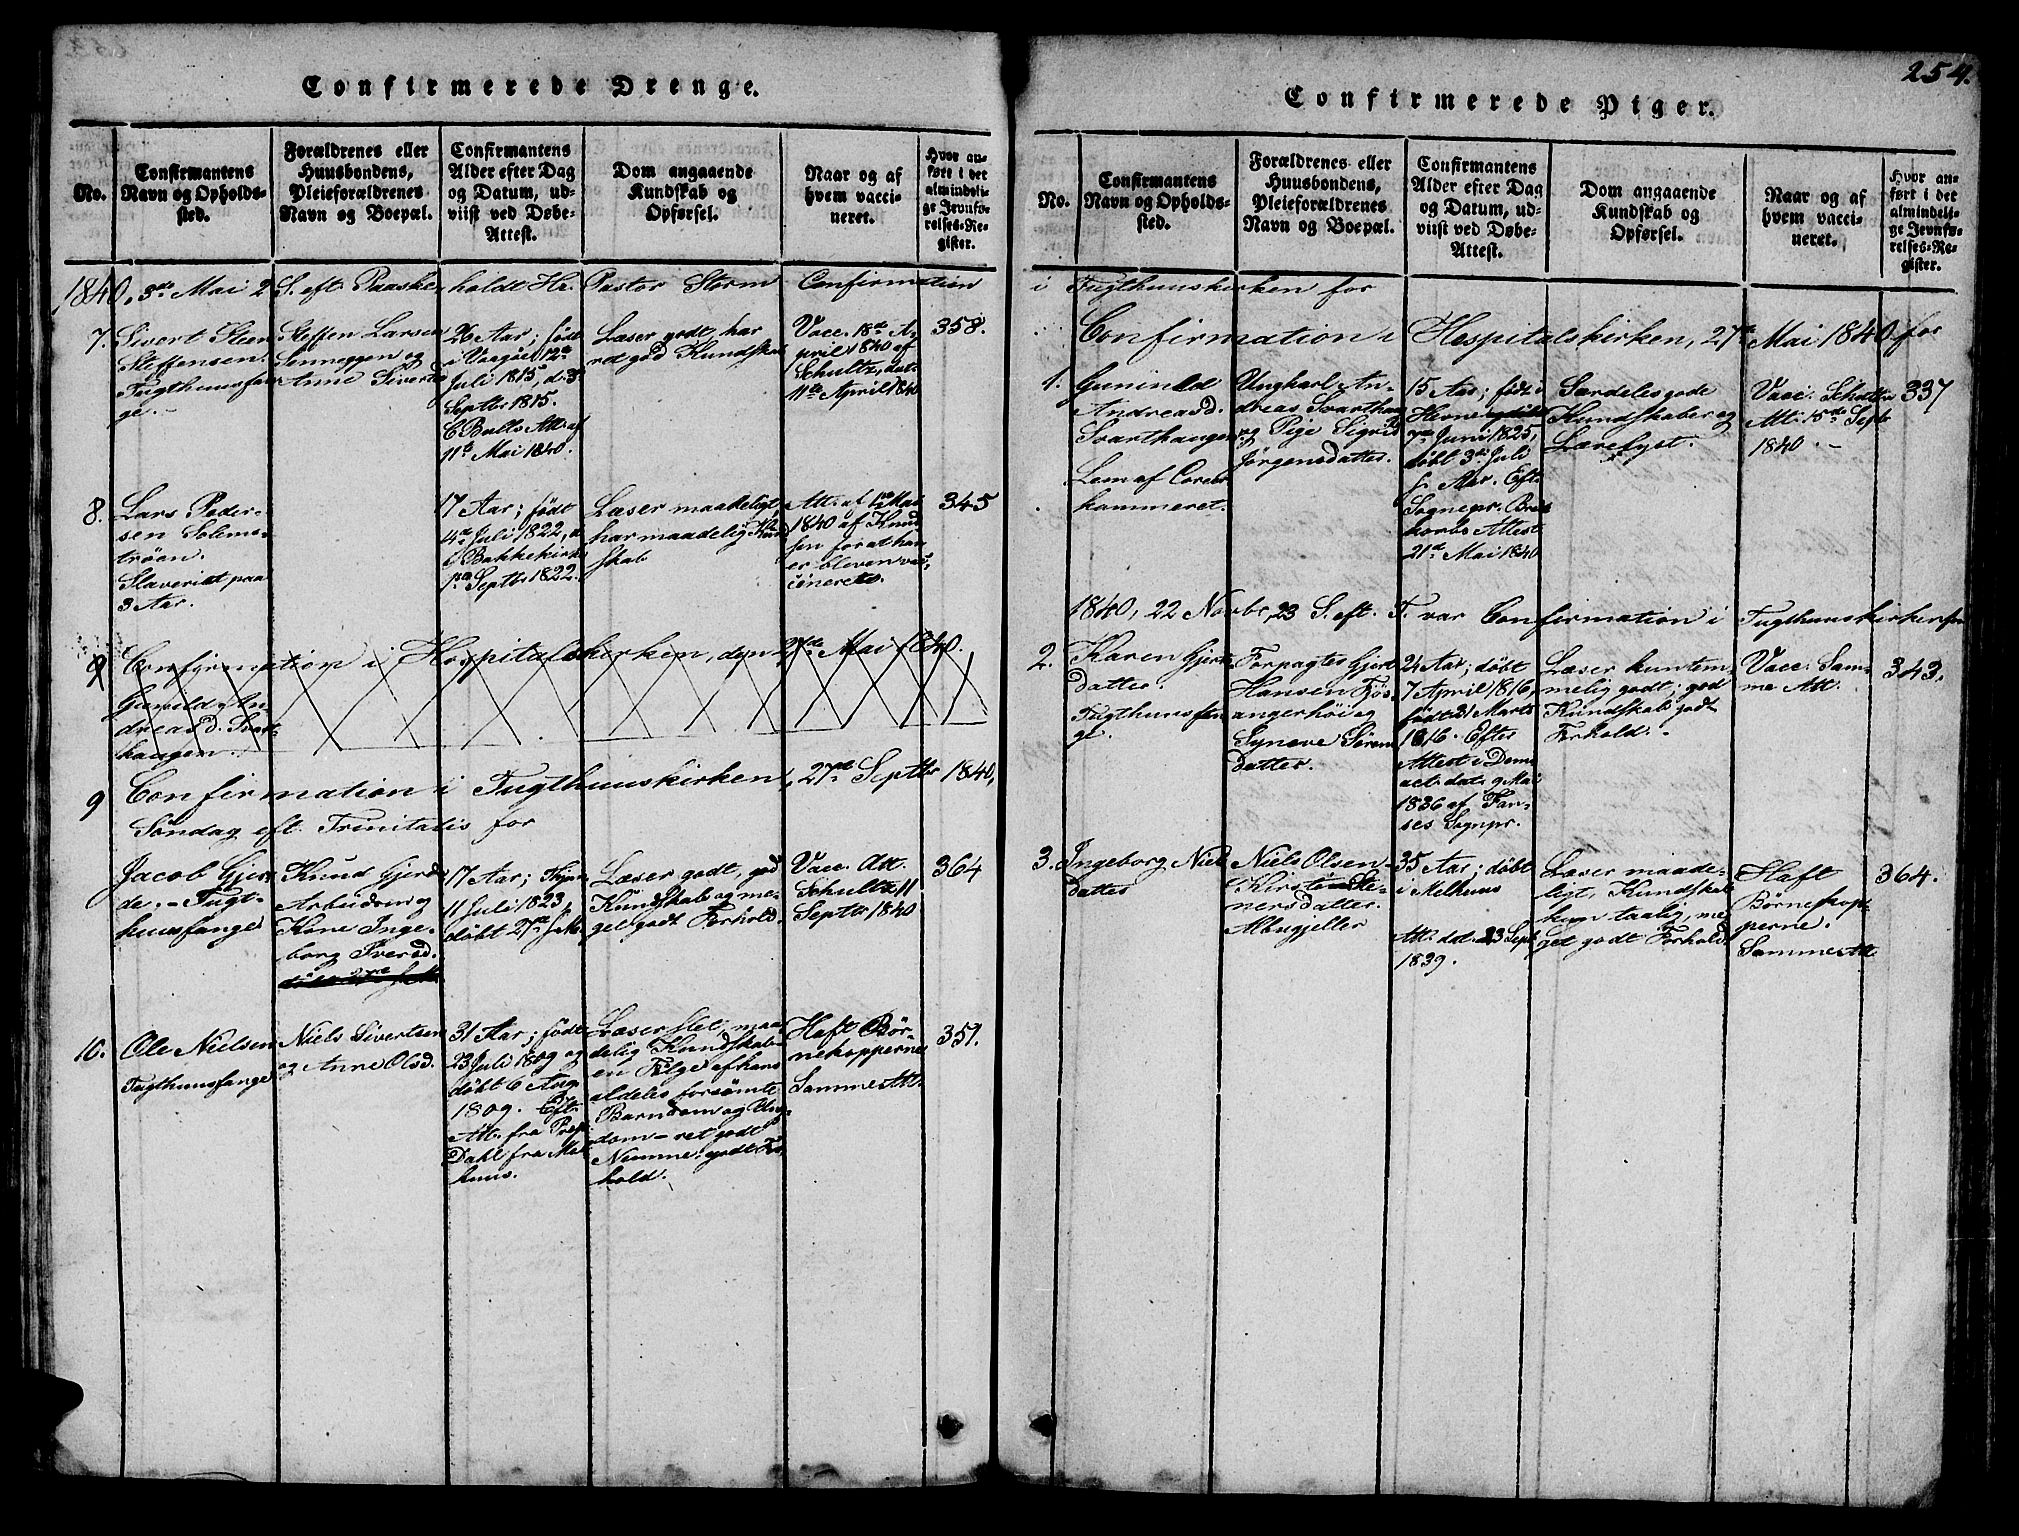 Confirmerede Drenge.
No.
Confirmantens
Navn og Opholds-
sted.
Forældrenes eller
Huusbondens,
Pleieforældrenes
Navn og Boepæl.
Confirmantens
Alder efter Dag
og Datum, ud-
viist ved Døbe-
Attest.
Dom angaaende
Kundskab og
Opførsel.
Naar og af
hvem vacci-
neret.
Hvor an-
ført i det
almindeli-
ge Jevnfø-
relses-Re-
gister.
1840, 3de Mai 2 S. eft. Paaske, holdt Hr. Pastor Storm Confirmation
7.
Sivert Steen
Steffensen.
Tugthuusfan-
ge.
Steffen Larsen
og
Anne Siverts
26 Aar; født
i Vaagøe 12te
Juli 1815, d. 3
Septbr 1815.
C. Bulls Att. af
11te Mai 1840.
Læser godt, har
ret god Kundskab
Vacc. 18de A-
pril 1840 af
Schultz, dat.
11te April 1840
358.
8.
Lars Peder-
sen Solems-
trøen.
Slaveriet paa
3 Aar.
17 Aar; født
4de Juli 1822, d.
i Bakkekirke
1ste Septbr 1822.
Læser maadeligt,
har maadelig Kund
skab
Att. af 1ste Mai
1840 af Knud
sen for at han
er bleven vac-
cineret.
345
9
Confirmation i Hospitalskirken, den 27de Mai 1840.
Gunild An-
dreasd. Svart-
haugen.
9
Confirmation i Tugthuuskirken, 27de Septbr 1840,
Søndag eft. Trinitatis for
Jacob Gjer-
de. - Tugt-
huusfange
Knud Gjerde
Arbudm. og
Kone Inge-
borg Iversd.
17 Aar;
11 Juli 1823,
døbt 27de s. M.
Læser godt, god
Kundskab og me-
get godt Forhold.
Vacc. Att.
Schultz 11
Septbr 1840
364
10.
Ole Nielsen
Tugthuusfange
Niels Sivertsen
og Anne Olsd.
31 Aar; født
23 Juli 1809 og
døbt 6 Aug.
1809. Eft.
Att. fra Prep.
Dahl fra Mel
huus.
Læser slet, maa
delig Kundskab
en Følge af hans
aldeles forsømte
Barndom og Un-
dom - ret godt
Nemme, godt For
hold.
Haft Bør-
nekopperne
Samme Att.
351.
254.
Confirmerede Piger.
No.
Confirmantens
Navn og Opholds-
sted.
Forældrenes eller
Huusbondens,
Pleieforældrenes
Navn og Boepæl.
Confirmantens
Alder efter Dag
og Datum, ud-
viist ved Døbe-
Attest.
Dom angaaende
Kundskab og
Opførsel.
Naar og af
hvem vacci-
neret.
Hvor an-
ført i det
almindeli-
ge Jevnfø-
relses-Re-
gister.
i Tugthuuskirken for
Confirmation i Hospitalskirken, 27de Mai 1840 for
1.
Gunild
Andreasd.
Svarthaugen
Lem af Coreb
hammeret.
Ungkarl An-
dreas Svarthaug
og Pige Sigrid
Jørgensdatter.
15 Aar; født i
Hevne
7de Juni 1825,
døbt 3die Juli
s. Aar. Eft.
Sognepr. Brod
korbs Attest
21de Mai 1840
Særdeles gode
Kundskaber og
Lærelyst.
Vacc.
Att. 15de Sept.
1840. -
337
1840, 22 Novbr, 23 S. eft. T. var Confirmation i Tugthuuskirken for
2.
Karen Gjert
datter.
Tugthuusfan
ge.
Forpagter Gjert
Hansen Fjøs-
angerhøi og
Syneve Sørens
datter.
24 Aar; døbt
7 April 1816,
født 21 Marts
1816. Efter
Attest i Dom
act. dat. 9 Mai
1836 af Fan-
ses Sognpr.
Læser kun tem-
melig godt; god
Kundskab godt
Forhold. -
Vacc. Sam-
me Att.
343.
3.
Ingeborg Niels
datter
Niels Olsen
Kirsten
nersdatter.
35 Aar; døbt
i Melhuus
Att. dat. 23 Sept.
1839.
Læser maade-
ligt, Kundskab
kun taalig, me
get godt Forhold
Haft
Børnekop-
perne.
Samme Att.
364.